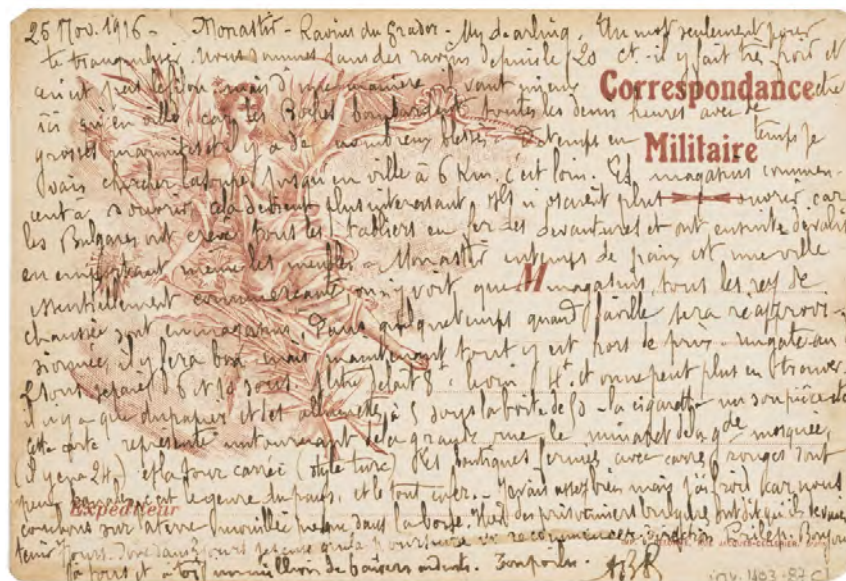 25 Nov. 1916 - Monastir - Ravins du - My dearling. Un mot seulement pour
te tranquilliser. Nous sommes dans des ravins depuis le 20 ct. il y fait très froid et
mais d'une manière il vaut mieux être
ici qu'en ville car les Boches bombardent toutes les deux heures avec de
grosses marmites et il y a de nombreux blessés - De temps en temps je
vais chercher la soupe jusqu'en ville à 6 Km. c'est loin. Les magasins commen-
cent à s'ouvrir, cela devient plus intéressant. Ils n'osaient plus ouvrir car
les Bulgares ont crevé tous les tabliers en fer des devantures et ont ensuite dévalisé
en emportant même les meubles - Monastir en temps de paix est une ville
essentiellement commerçante, on n'y voit que magasins, tous les rez de
chaussée sont en magasins. Dans quelque temps quand la ville sera réapprovi-
sionnée, il y fera bon mais maintenant tout y est hors de prix - un gateau
d'1 sou se paie 6 et 10 sous. 1 litre de lait 8f, le vin 4f. et on ne peut plus en trouver.
il n'y a que du papier et des allumettes à 5 sous la boite de 50 - la cigarette un sou pièce etc
Cette carte représente un tournant de la grande rue, le minaret de la gde mosquée,
(il y en a 24) et la Tour carrée (style turc) Les boutiques fermées avec carrés rouges sont
c'est le genre du pays, et le tout en fer. - Je vais assez bien mais j'ai froid car nous
couchons sur la terre mouillée presque dans la boue. Hier des prisonniers bulgares ont dit qu'ils devaient
tenir jours. Donc dans jours je pense que la poursuite va recommencer direction Prilep. Bonjour
à tous et à toi un million de baisers ardents. Ton poilu.
Correspondance
Militaire
M
Expéditeur